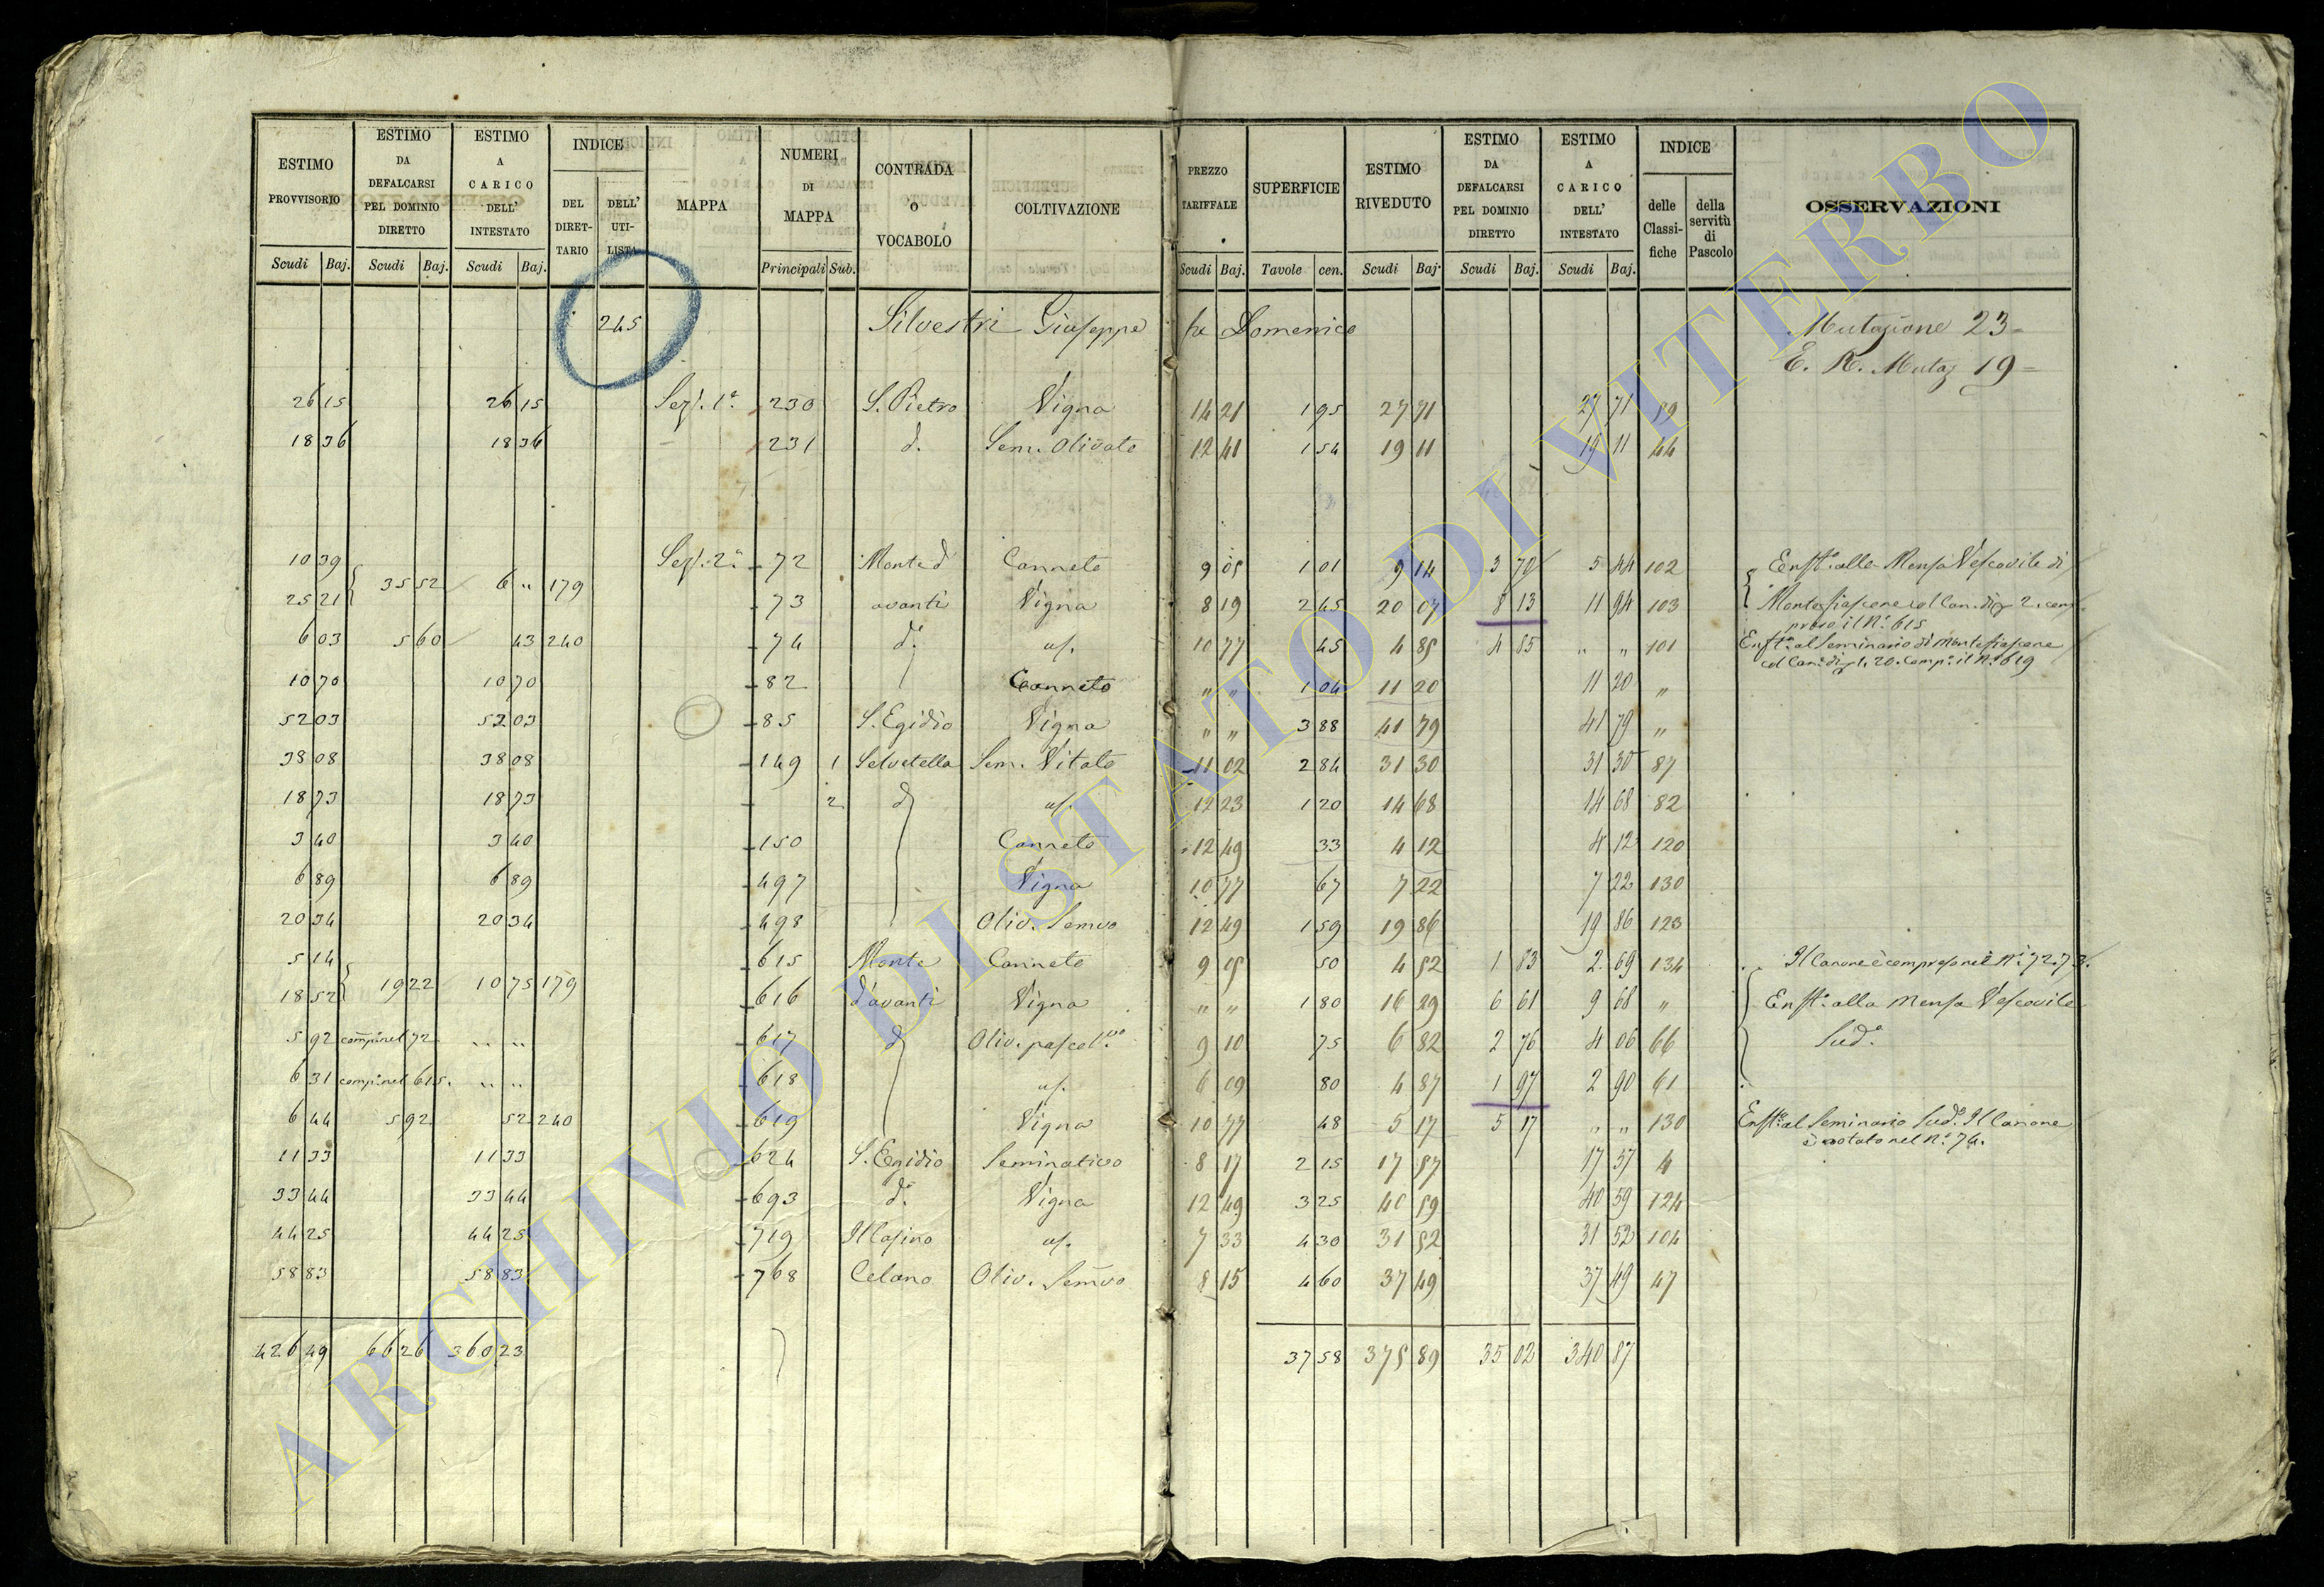 ESTIMO PROVVISORIO Scudi Baj.
ESTIMO DA DEFALCARSI PEL DOMINIO DIRETTO Scudi Baj.
ESTIMO A CARICO DELL' INTESTATO Scudi Baj.
INDICE DEL DIRETTARIO DELL' UTILISTA
MAPPA
NUMERI DI MAPPA Principali Sub.
CONTRADA O VOCABOLO
COLTIVAZIONE
PREZZO TARIFFALE Scudi Baj.
SUPERFICIE Tavole cen.
ESTIMO RIVEDUTO Scudi Baj.
ESTIMO DA DEFALCARSI PEL DOMINIO DIRETTO Scudi Baj.
ESTIMO A CARICO DELL' INTESTATO Scudi Baj.
INDICE delle Classifiche della servitù di Pascolo
OSSERVAZIONI
245 Silvestri Giuseppe fu Domenico Mutazione 23=
E. R. Mutaz 19=
26 15 26 15 Sez. 1ª 230 S. Pietro Vigna 14 21 1 95 27 71 27 71 89
18 36 18 36 231 d. Sem. Olivato 12 41 1 54 19 11 19 11 44
10 39 35 52 6 " 179 Sez. 2ª 72 Monte d' Canneto 9 05 1 01 9 14 3 70 5 44 102 Enfta. alla Mensa Vescovile di
25 21 73 avanti Vigna 8 19 2 45 20 07 8 13 11 94 103 Montefiascone col Can. di 2. com-
prese il N. 615
6 03 5 60 43 240 74 d. us. 10 77 45 4 85 4 85 " " 101 Enfta. al Seminario di Montefiascone
col Can. di 1. 20. comp. il N. 619
10 70 10 70 82 Canneto " " 1 04 11 20 11 20 "
52 03 52 03 85 S. Egidio Vigna " " 3 88 41 79 41 79 "
38 08 38 08 149 1 Selvetella Sem. Vitato 11 02 2 84 31 30 31 30 87
18 73 18 73 2 d. us. 12 23 1 20 14 68 14 68 82
3 40 3 40 150 Canneto 12 49 33 4 12 4 12 120
6 89 6 89 497 Vigna 10 77 67 7 22 7 22 130
20 34 20 34 498 Oliv. Semvo 12 49 1 59 19 86 19 86 123
5 14 19 22 10 75 179 615 Monte Canneto 9 05 50 4 52 1 83 2 69 134 Il Canone è compreso nei Ni. 72. 73.
18 52 616 d'avanti Vigna " " 1 80 16 29 6 61 9 68 " Enfta. alla Mensa Vescovile
5 92 comp. nel 72 " " 617 d. Oliv. pascolvo 9 10 75 6 82 2 76 4 06 66 Sud.a
6 31 comp. nel 615. " " 618 us. 6 09 80 4 87 1 97 2 90 61
6 44 5 92 52 240 619 Vigna 10 77 48 5 17 5 17 " " 130 Enfta. al Seminario Sud. Il Canone
è notato nel N. 74.
11 33 11 33 624 S. Egidio Seminativo 8 17 2 15 17 57 17 57 4
33 44 33 44 693 d. Vigna 12 49 3 25 40 59 40 59 124
44 25 44 25 719 Il Casino us. 7 33 4 30 31 52 31 52 104
58 83 58 83 768 Celano Oliv. Semvo 8 15 4 60 37 49 37 49 47
426 49 66 26 360 23 37 58 375 89 35 02 340 87
ARCHIVIO DI STATO DI VITERBO